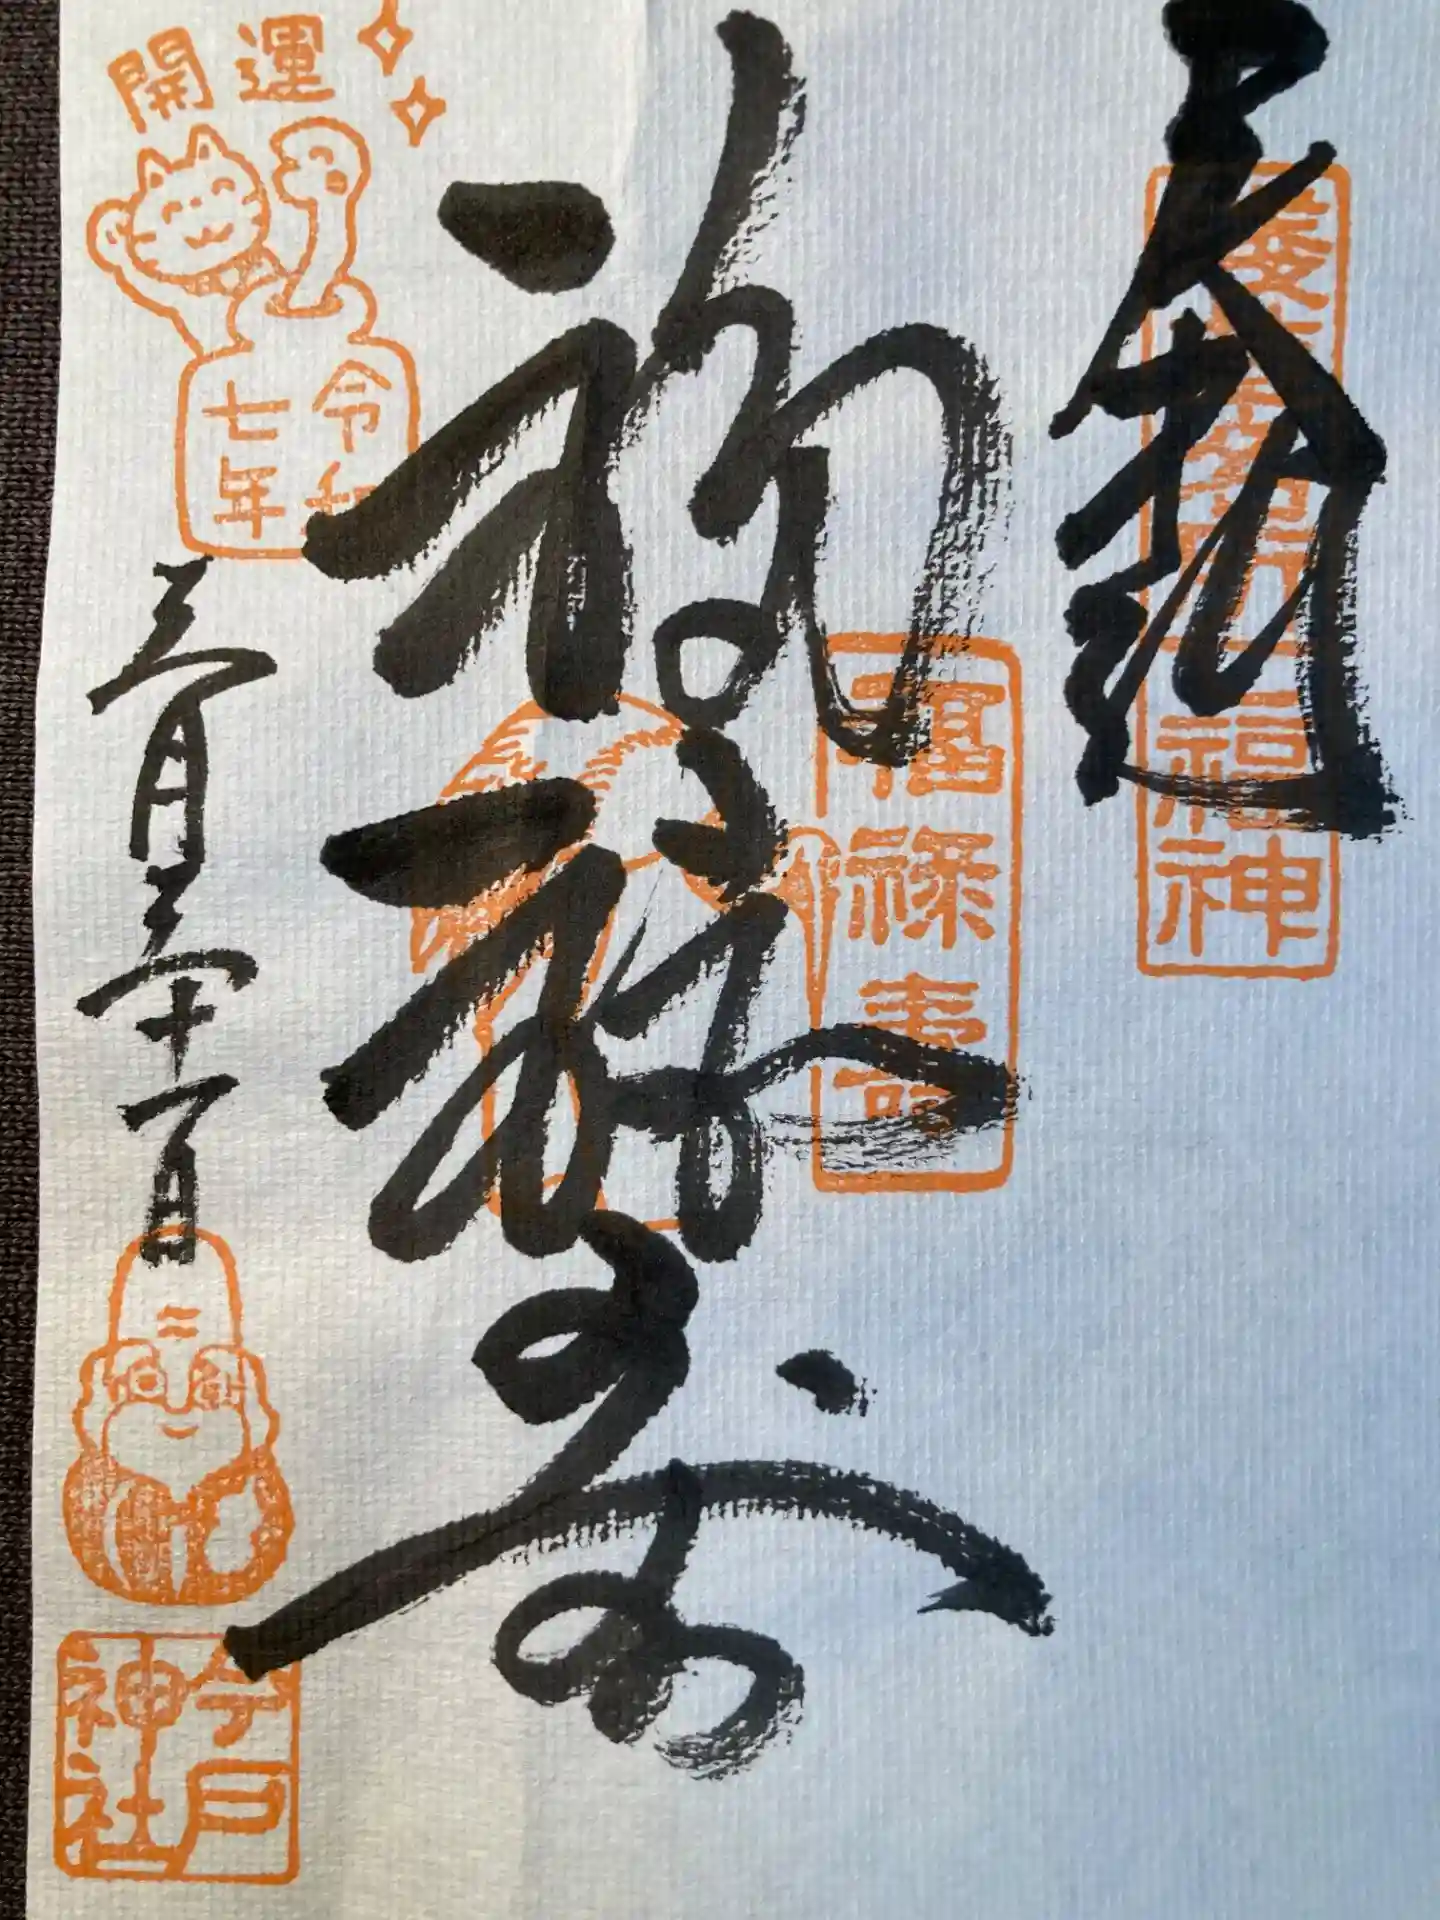 奉拝
浅草名所七福神
福禄寿
福禄寿
開運
令和
七年
三月二十一日
今戸
神社